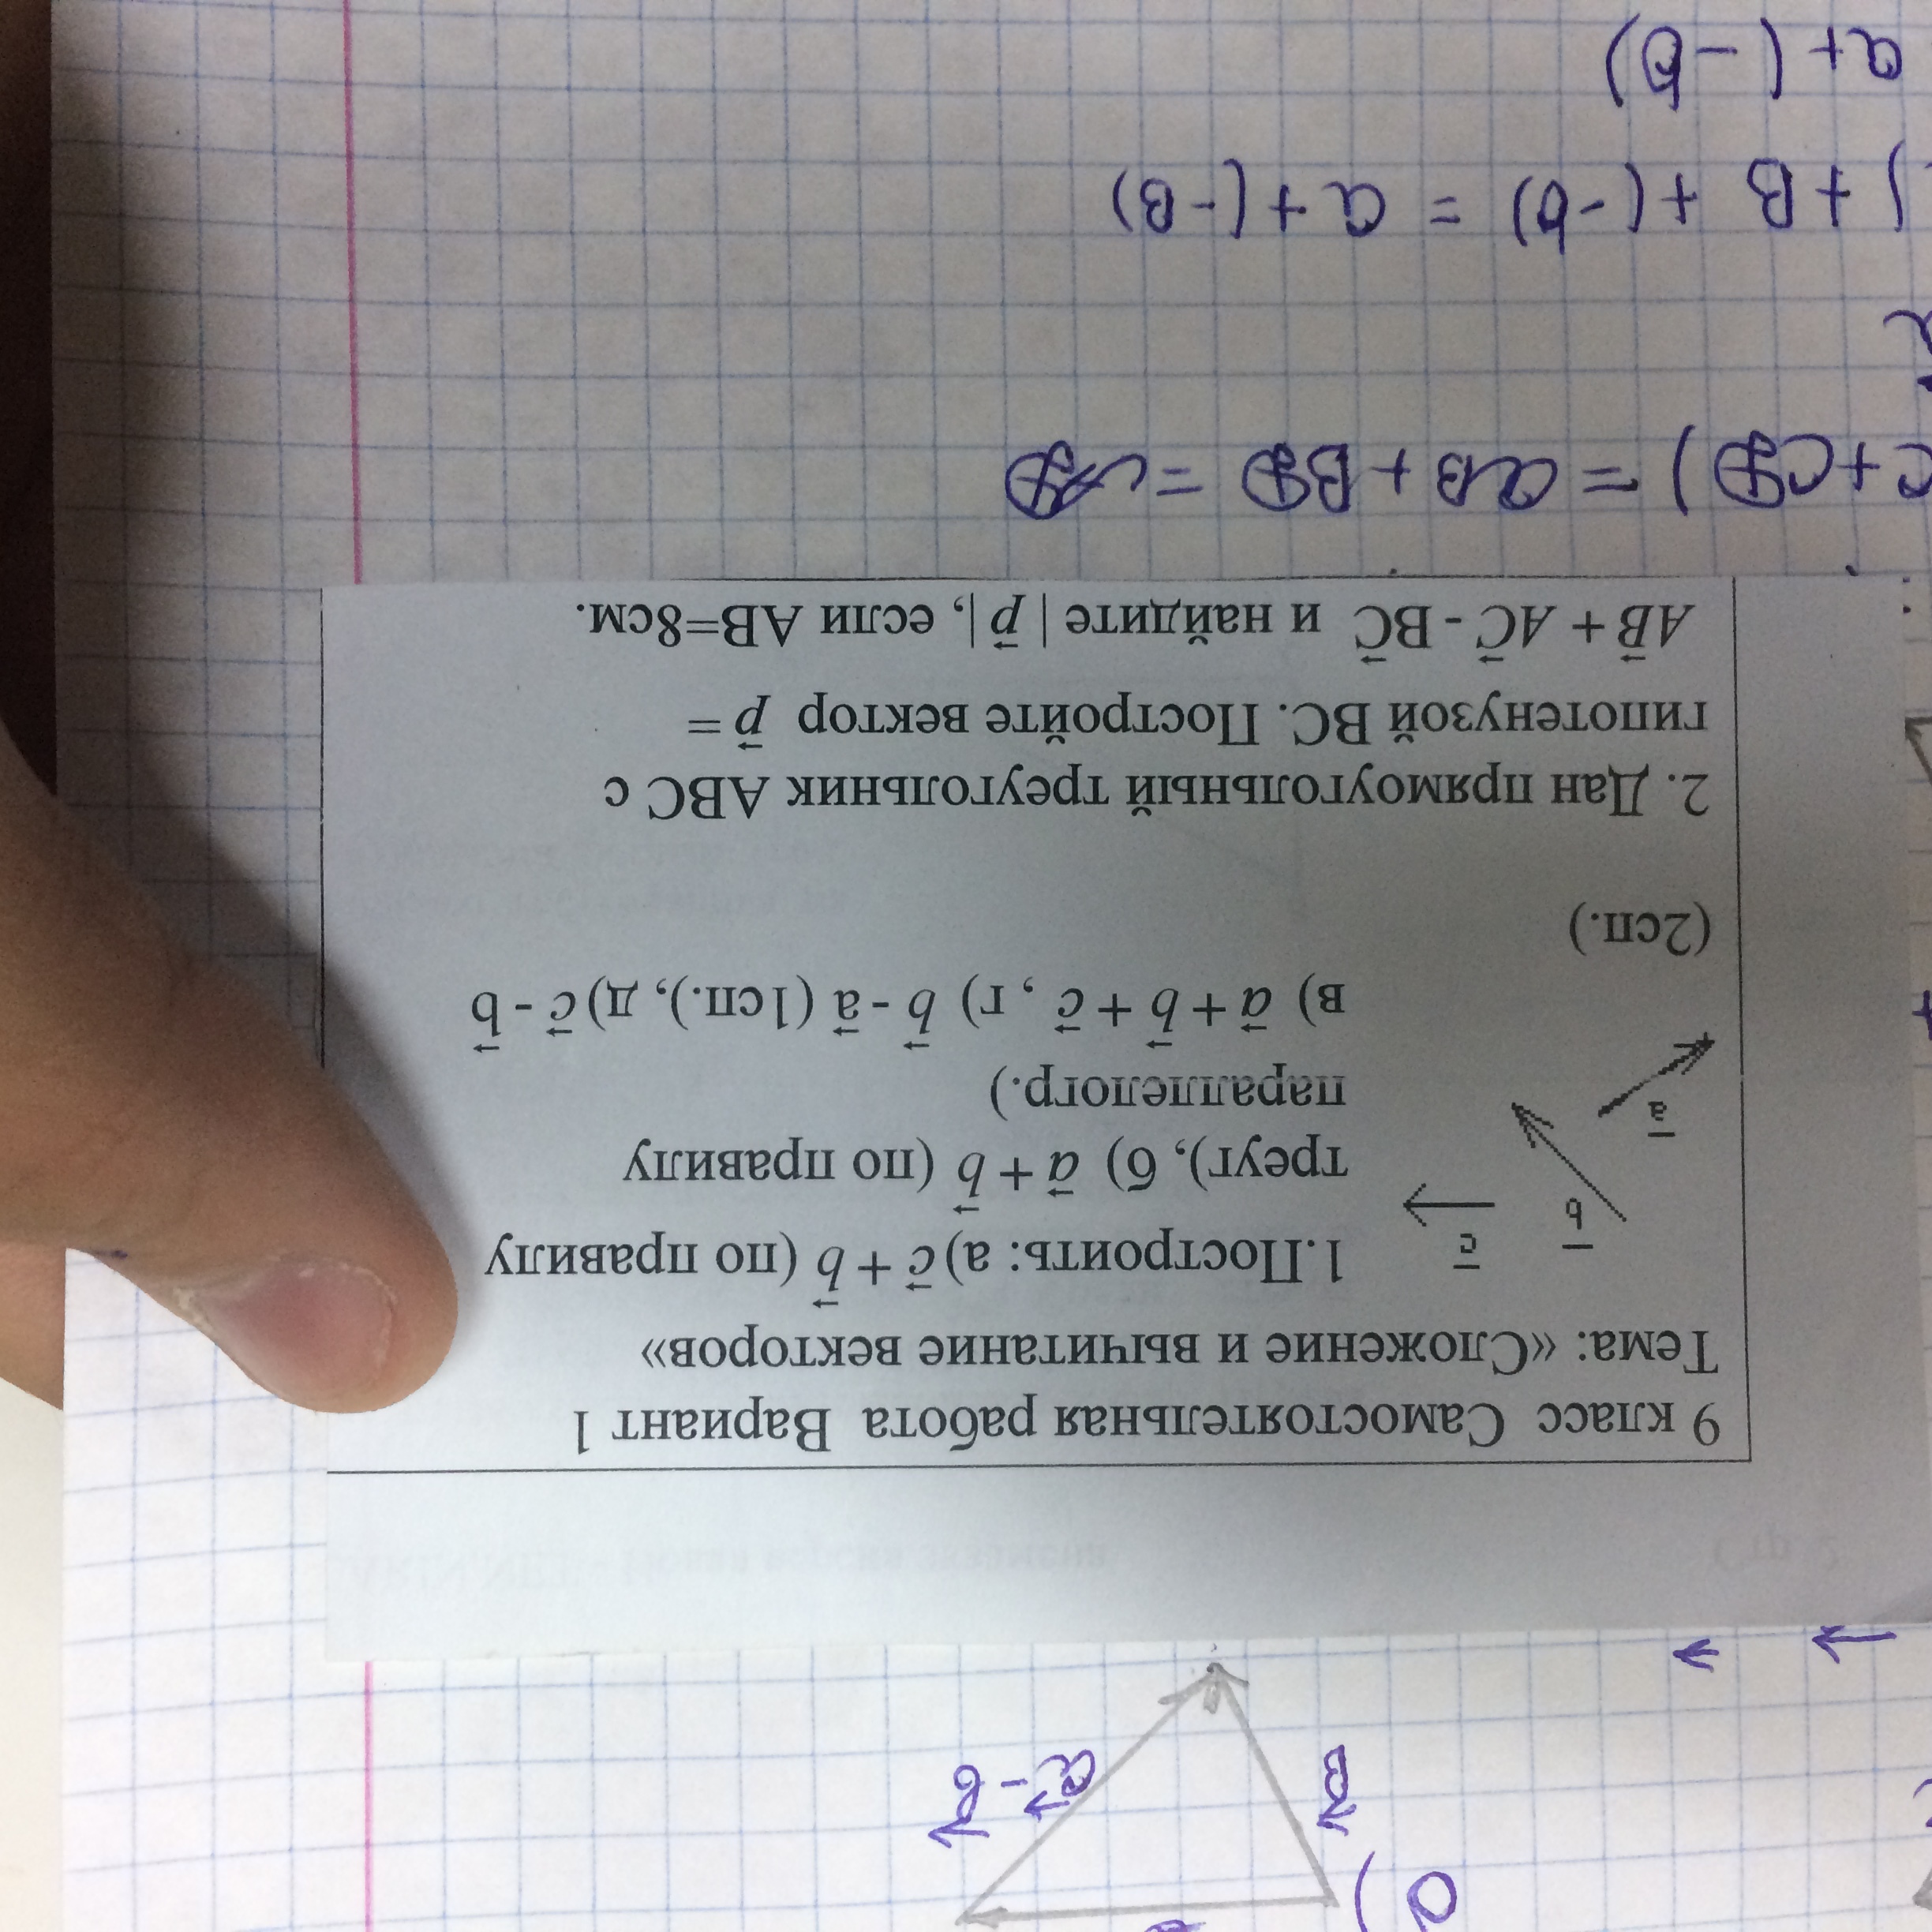 a)
B
a - b
9 класс Самостоятельная работа Вариант 1
Тема: «Сложение и вычитание векторов»
1.Построить: а) c + b (по правилу
треуг), б) a + b (по правилу
параллелогр.)
в) a + b + c , г) b - a (1сп.), д) c - b
(2сп.)
c
b
a
2. Дан прямоугольный треугольник ABC с
гипотенузой BC. Постройте вектор p =
AB + AC - BC и найдите | p |, если AB=8см.
c+CD) = aB + BD =
) + B + (-b) = a + (-B)
a + (-b)